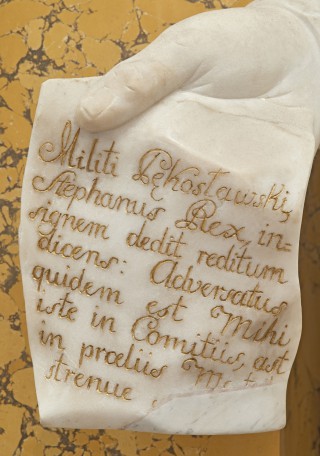 Militi Pękosławski,
Stephanus Rex, in=
signem dedit reditum
dicens: Adversatus
quidem est Mihi
iste in Comitiis, ast
in prœliis
strenue